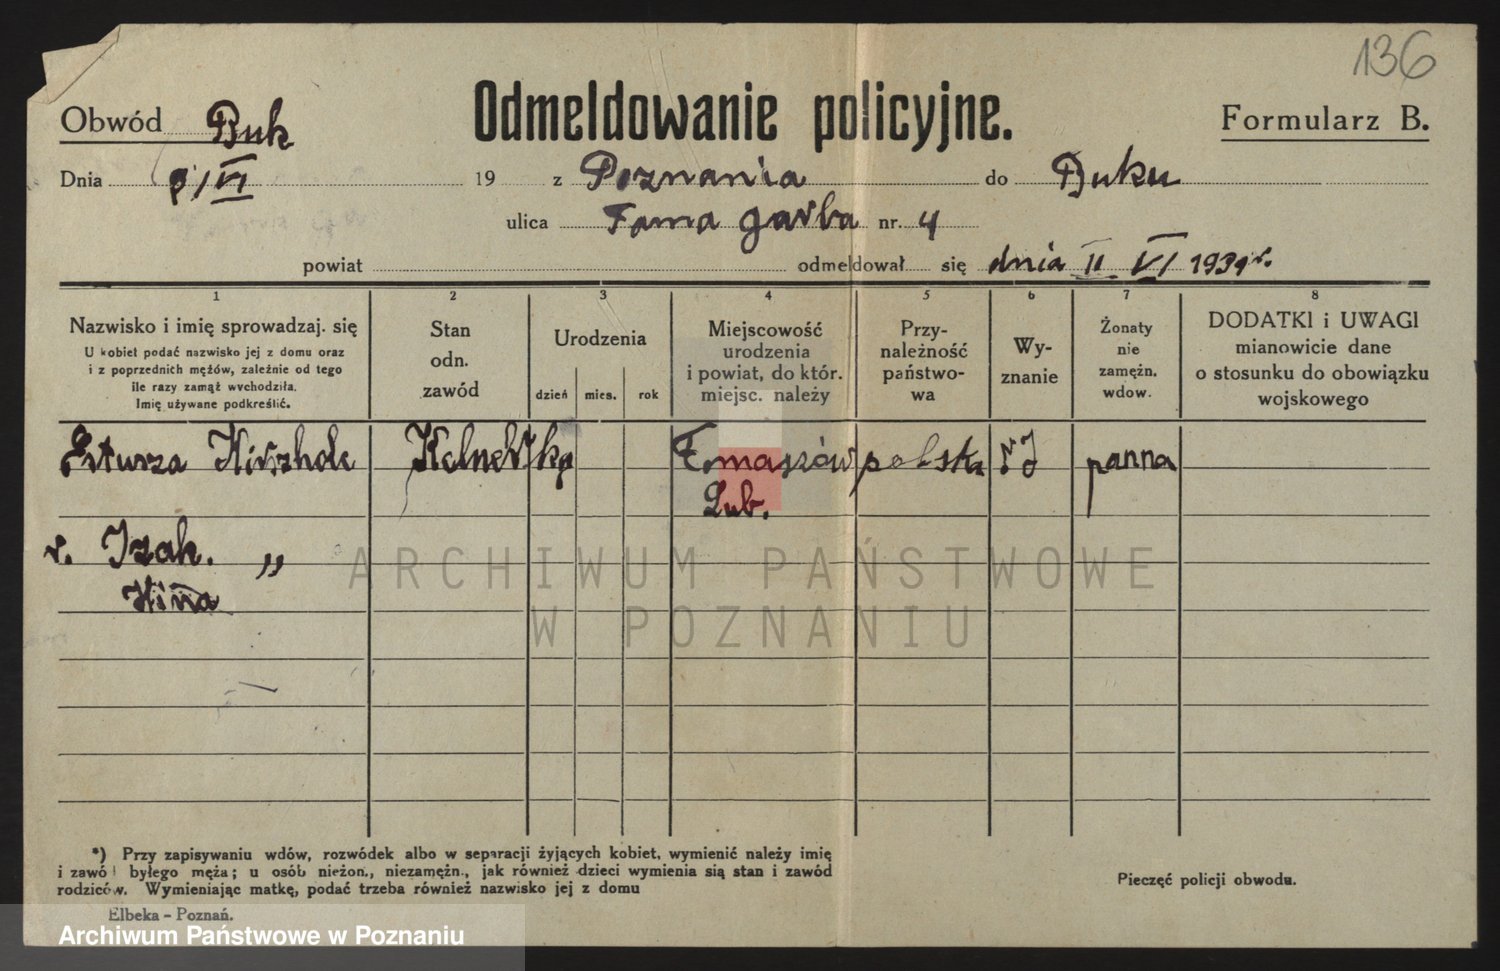 136
Obwód Buk
Odmeldowanie policyjne.
Formularz B.
Dnia 9/VI 19 z Poznania do Buku
ulica Tama garba nr. 4
powiat odmeldował się dnia II VI 1931 r.
1 2 3 4 5 6 7 8
Nazwisko i imię sprowadzaj. się
U kobiet podać nazwisko jej z domu oraz
i z poprzednich mężów, zależnie od tego
ile razy zamąż wychodziła.
Imię używane podkreślić.
Stan
odn.
zawód
Urodzenia
dzień mies. rok
Miejscowość
urodzenia
i powiat, do któr.
miejsc. należy
Przy-
należność
państwo-
wa
Wy-
znanie
Żonaty
nie
zamężn.
wdow.
DODATKI i UWAGI
mianowicie dane
o stosunku do obowiązku
wojskowego
Kelnerka Tomaszów polska panna
Lub.
r. Izak. „
ARCHIWUM PAŃSTWOWE
W POZNANIU
*) Przy zapisywaniu wdów, rozwódek albo w separacji żyjących kobiet, wymienić należy imię
i zawó byłego męża; u osób nieżon., niezamężn., jak również dzieci wymienia sią stan i zawód
rodziców. Wymieniając matkę, podać trzeba również nazwisko jej z domu
Pieczęć policji obwodu.
Elbeka - Poznań.
Archiwum Państwowe w Poznaniu